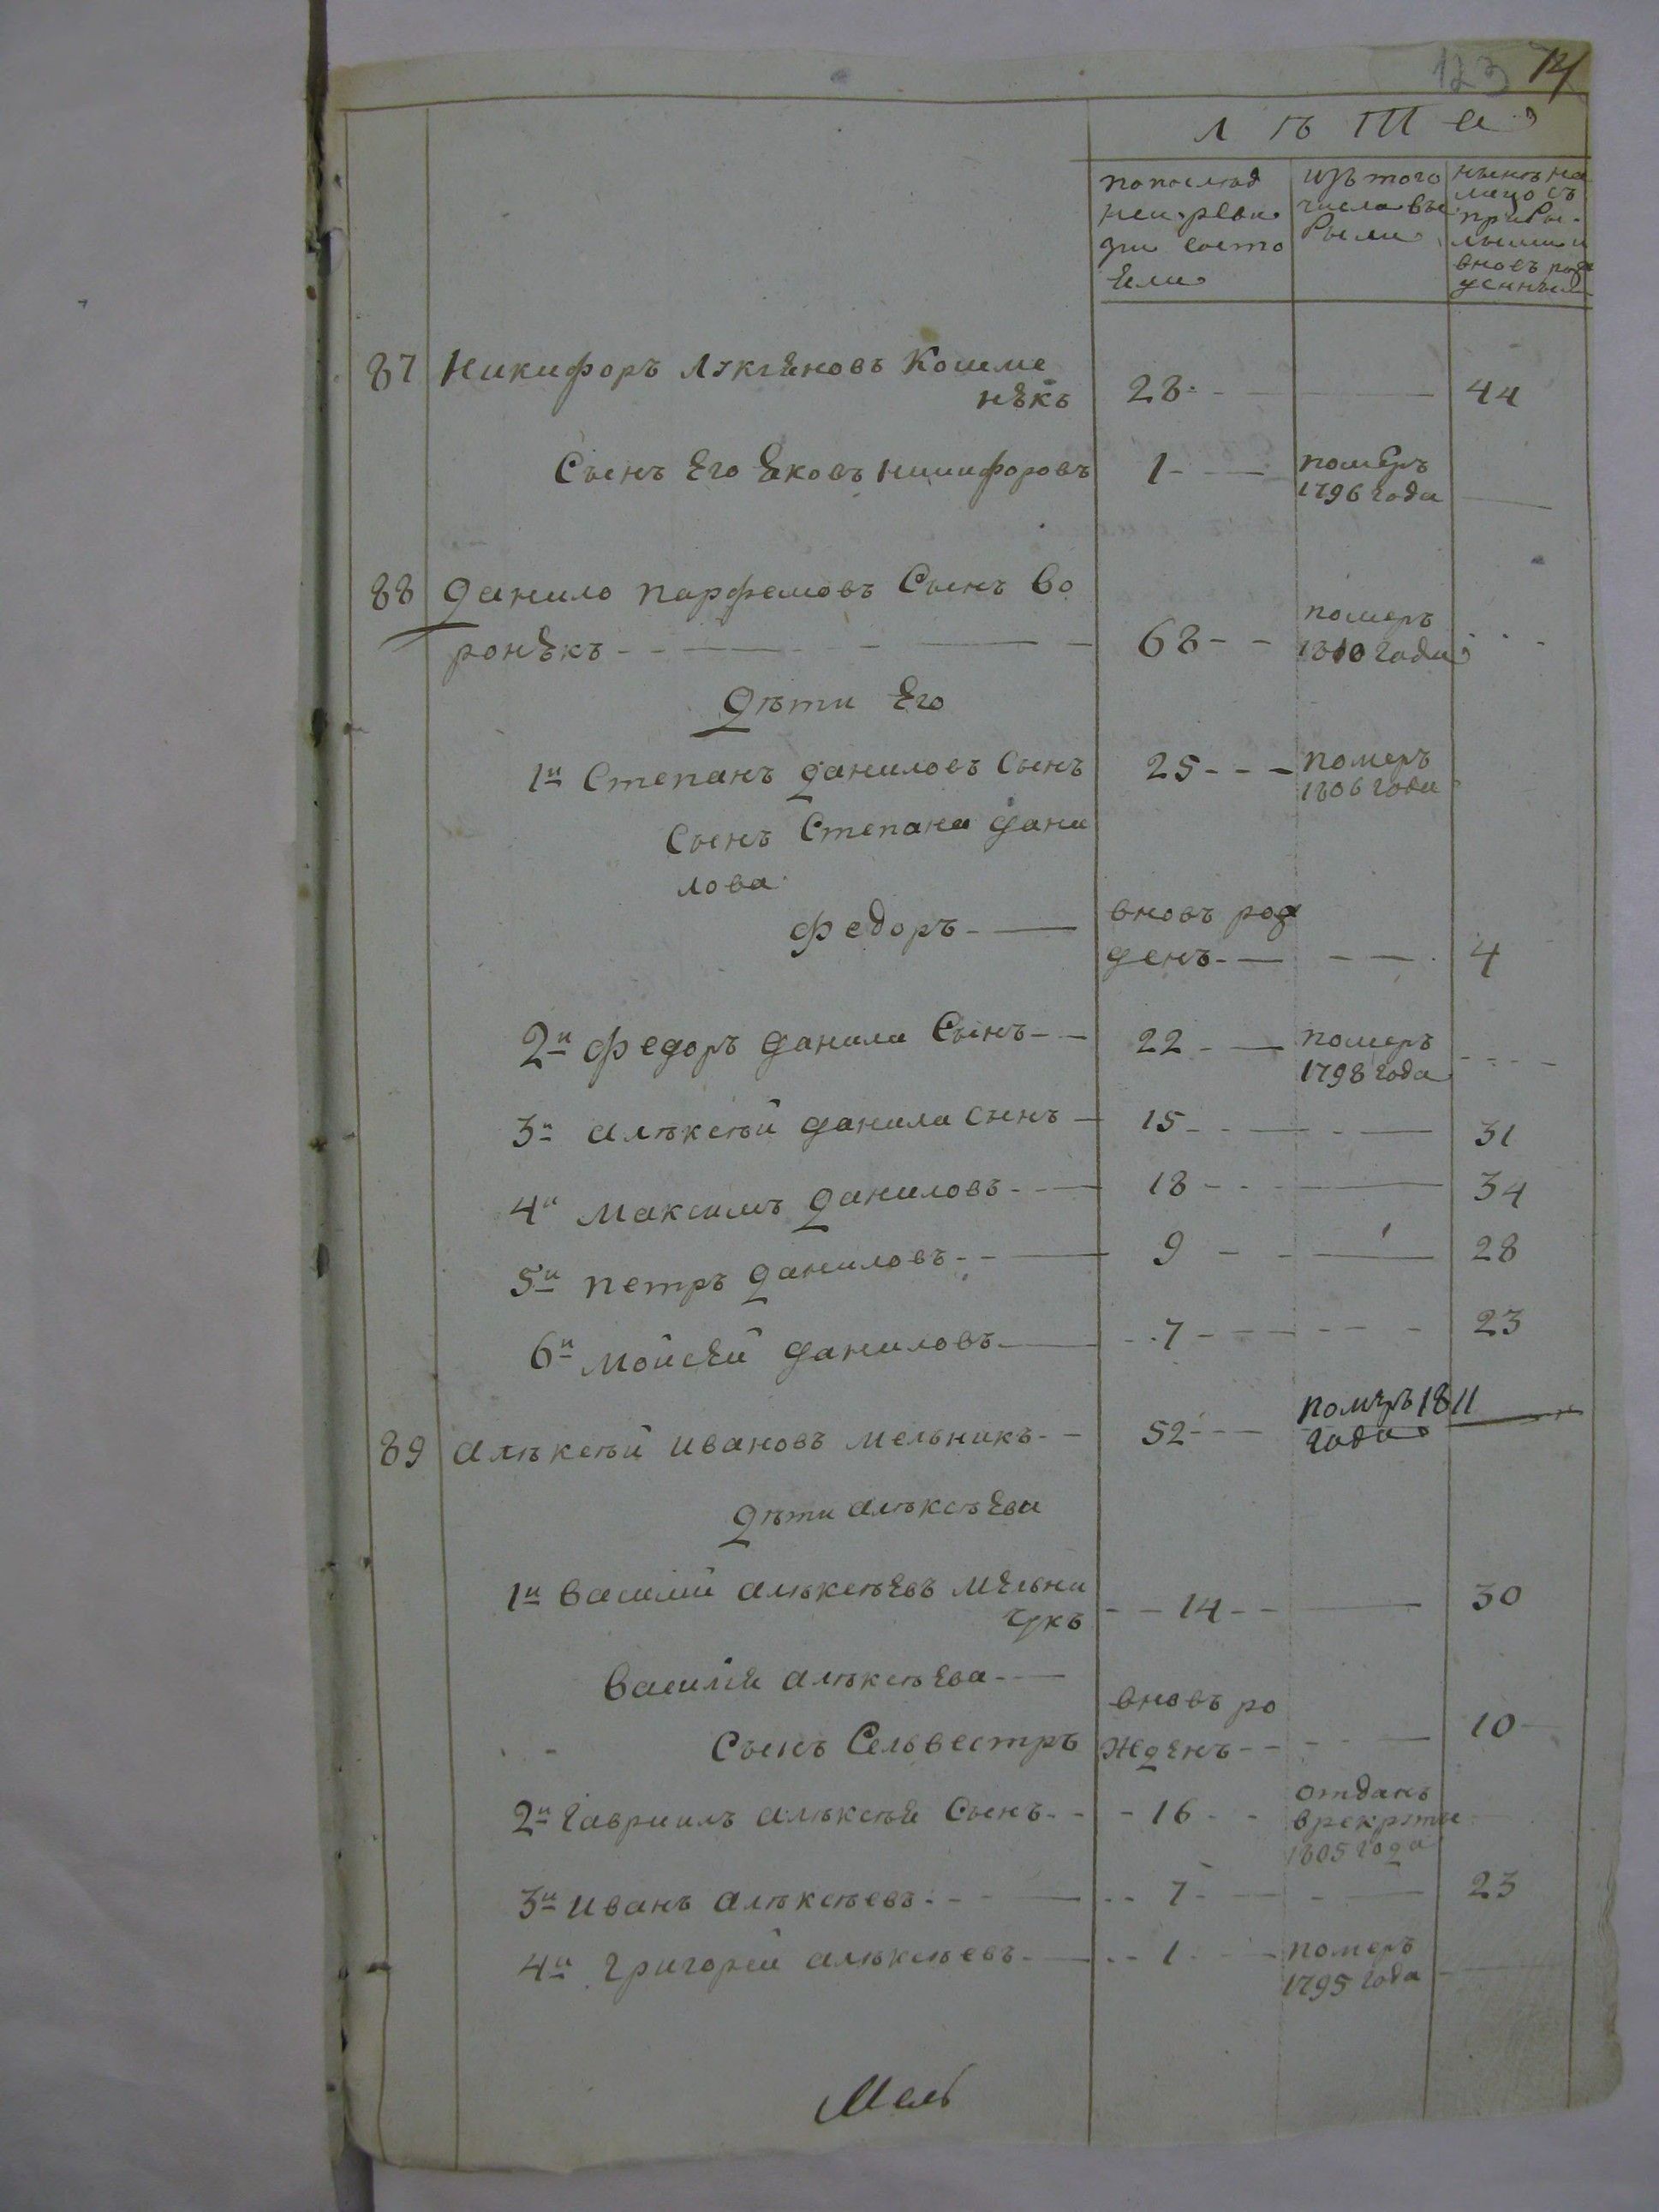 123 14
лѣта
попослѣд изъ того нынѣ на
ней реви числа вы лицо съ
зіи состо были прибы
яли лыми и
вновь рож
денными
87 Никифоръ Лукяновъ Кошме
някъ 28 44
Сынъ Его Яковъ Никифоровъ 1 померъ
1796 года
88 Данило парфемовъ Сынъ Во
ронякъ 68 померъ
1810 года
Дѣти Его
1й Степанъ Даниловъ Сынъ 25 померъ
1806 года
Сынъ Степана Дани
лова
Федоръ вновь рож
денъ 4
2й Федоръ Данила Сынъ 22 померъ
1798 года
3й Алѣксѣй Данила сынъ 15 31
4й Максимъ Даниловъ 18 34
5й Петръ Даниловъ 9 28
6й Мойсей Даниловъ 7 23
89 Алѣксѣй Ивановъ Мельникъ 52 померъ 1811
года
Дѣти Алѣксѣева
1й Василий Алѣксѣевъ Мельни
чукъ 14 30
Василия Алѣксѣева
Сынъ Сельвестръ вновь ро
жденъ 10
2й Гавриилъ Алѣксѣя Сынъ 16 отданъ
врекруты
1805 года
3й Иванъ Алѣксѣевъ 7 23
4й Григорей Алѣксѣевъ 1 померъ
1795 года
Мель